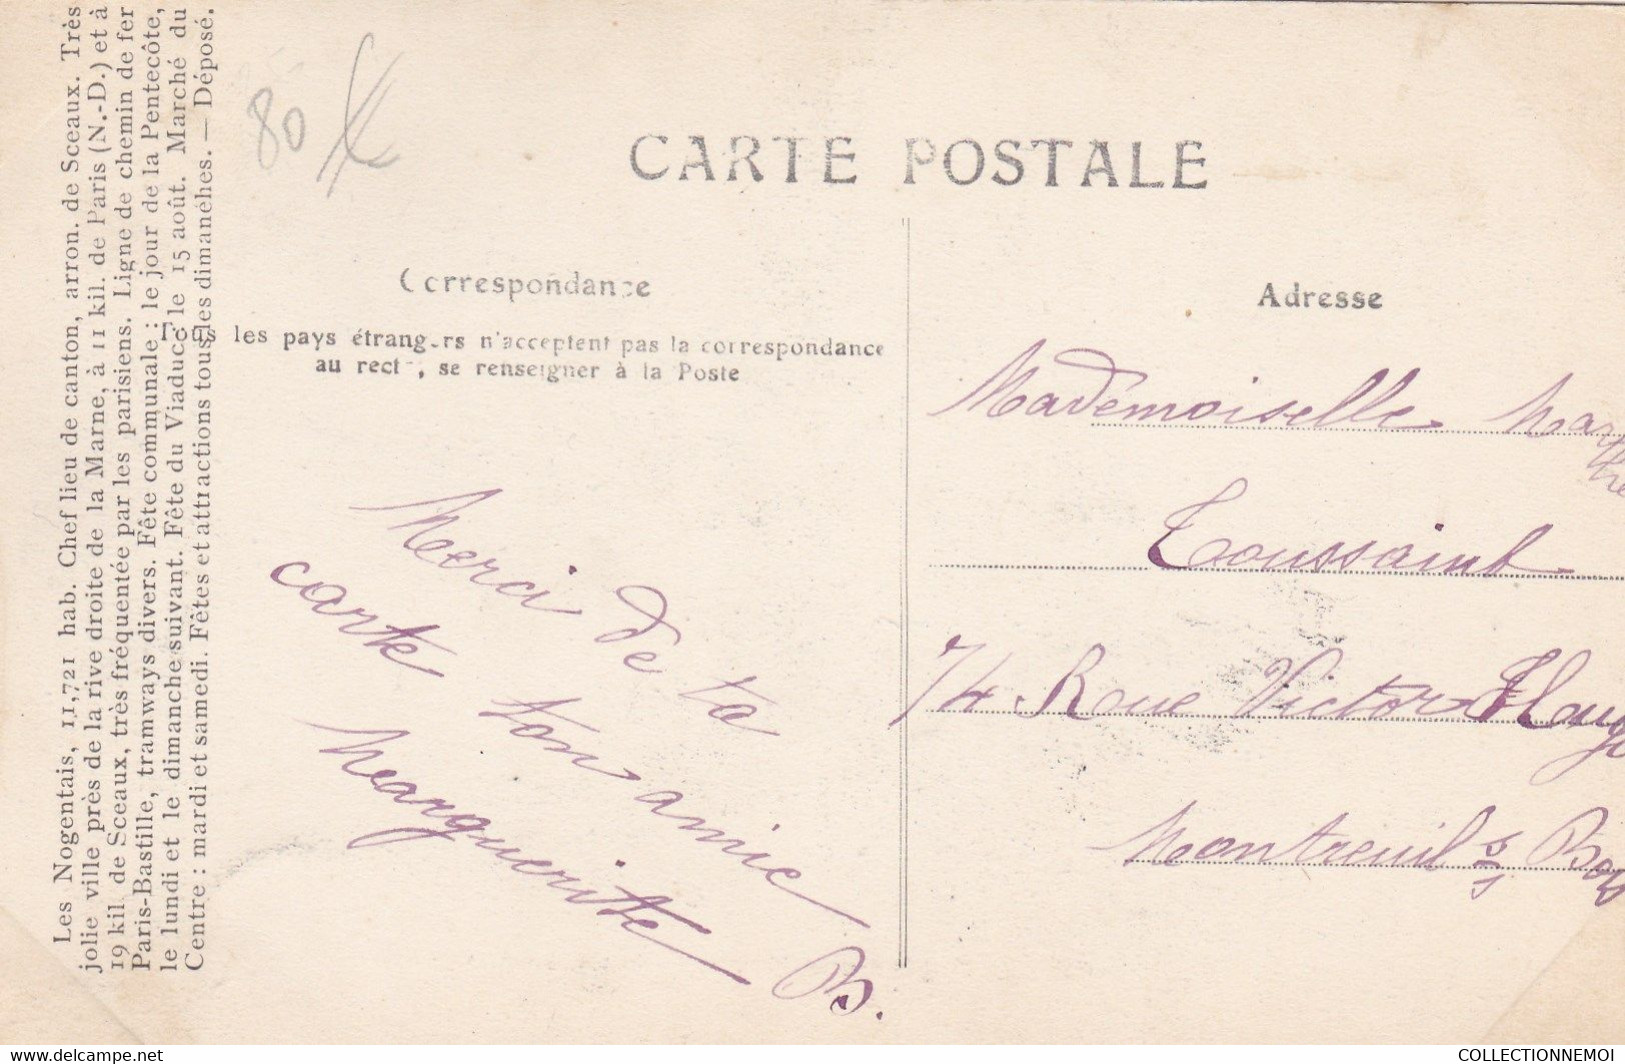 Les Nogentais, 11,721 hab. Chef lieu de canton, arron. de Sceaux. Très
jolie ville près de la rive droite de la Marne, à 11 kil. de Paris (N.-D.) et à
19 kil. de Sceaux, très fréquentée par les parisiens. Ligne de chemin de fer
Paris-Bastille, tramways divers. Fête communale : le jour de la Pentecôte,
le lundi et le dimanche suivant. Fête du Viaduc : le 15 août. Marché du
Centre : mardi et samedi. Fêtes et attractions tous les dimanches. — Déposé.
80
CARTE POSTALE
Correspondance
Tous les pays étrangers n'acceptent pas la correspondance
au recto, se renseigner à la Poste
Merci de ta
carte ton amie
Marguerite B.
Adresse
Mademoiselle Marthe
Toussaint
74 Rue Victor Hugo
Montreuil s/s Bois
COLLECTIONNEMOI